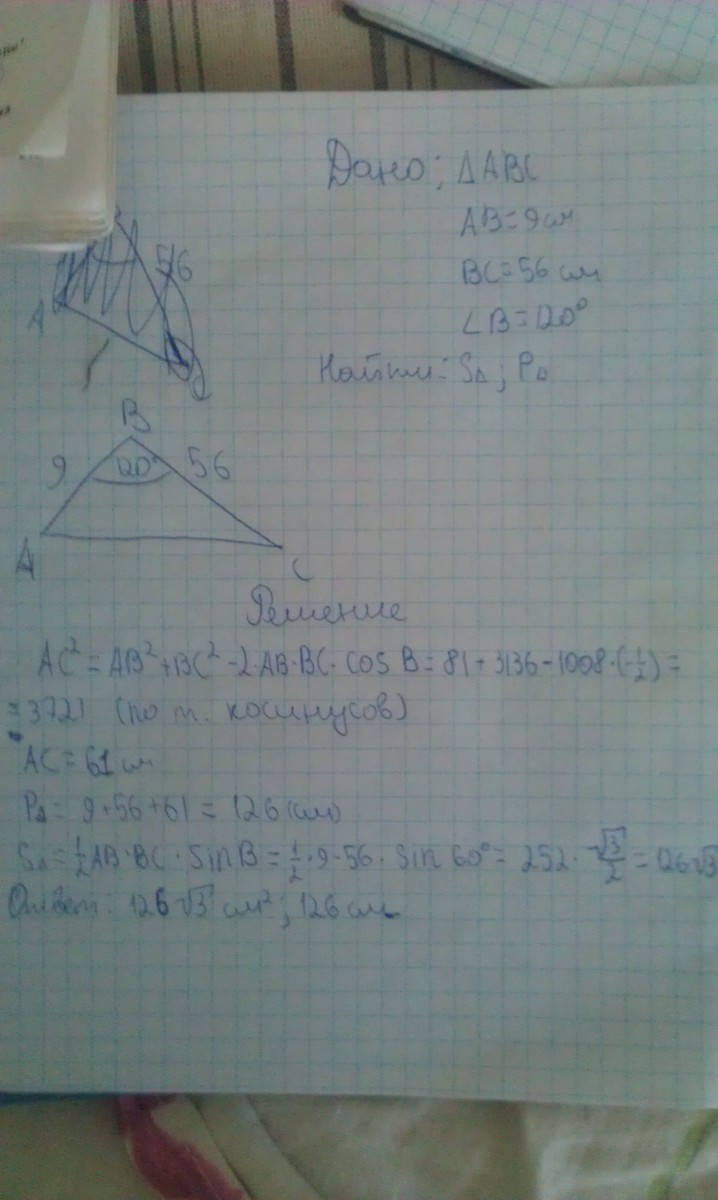 Дано: ΔABC
AB=9см
BC=56 см
∠B=120°
Найти: SΔ; PΔ
56
A
B
9 120° 56
A C
Решение
AC²=AB²+BC²-2·AB·BC·cos B=81+3136-1008·(-1/2)=
=3721 (по т. косинусов)
AC=61см
PΔ= 9+56+61= 126(см)
SΔ=1/2AB·BC·sinB=1/2·9·56·sin 60°=252·√3/2=126√3
Ответ: 126√3 см²; 126см